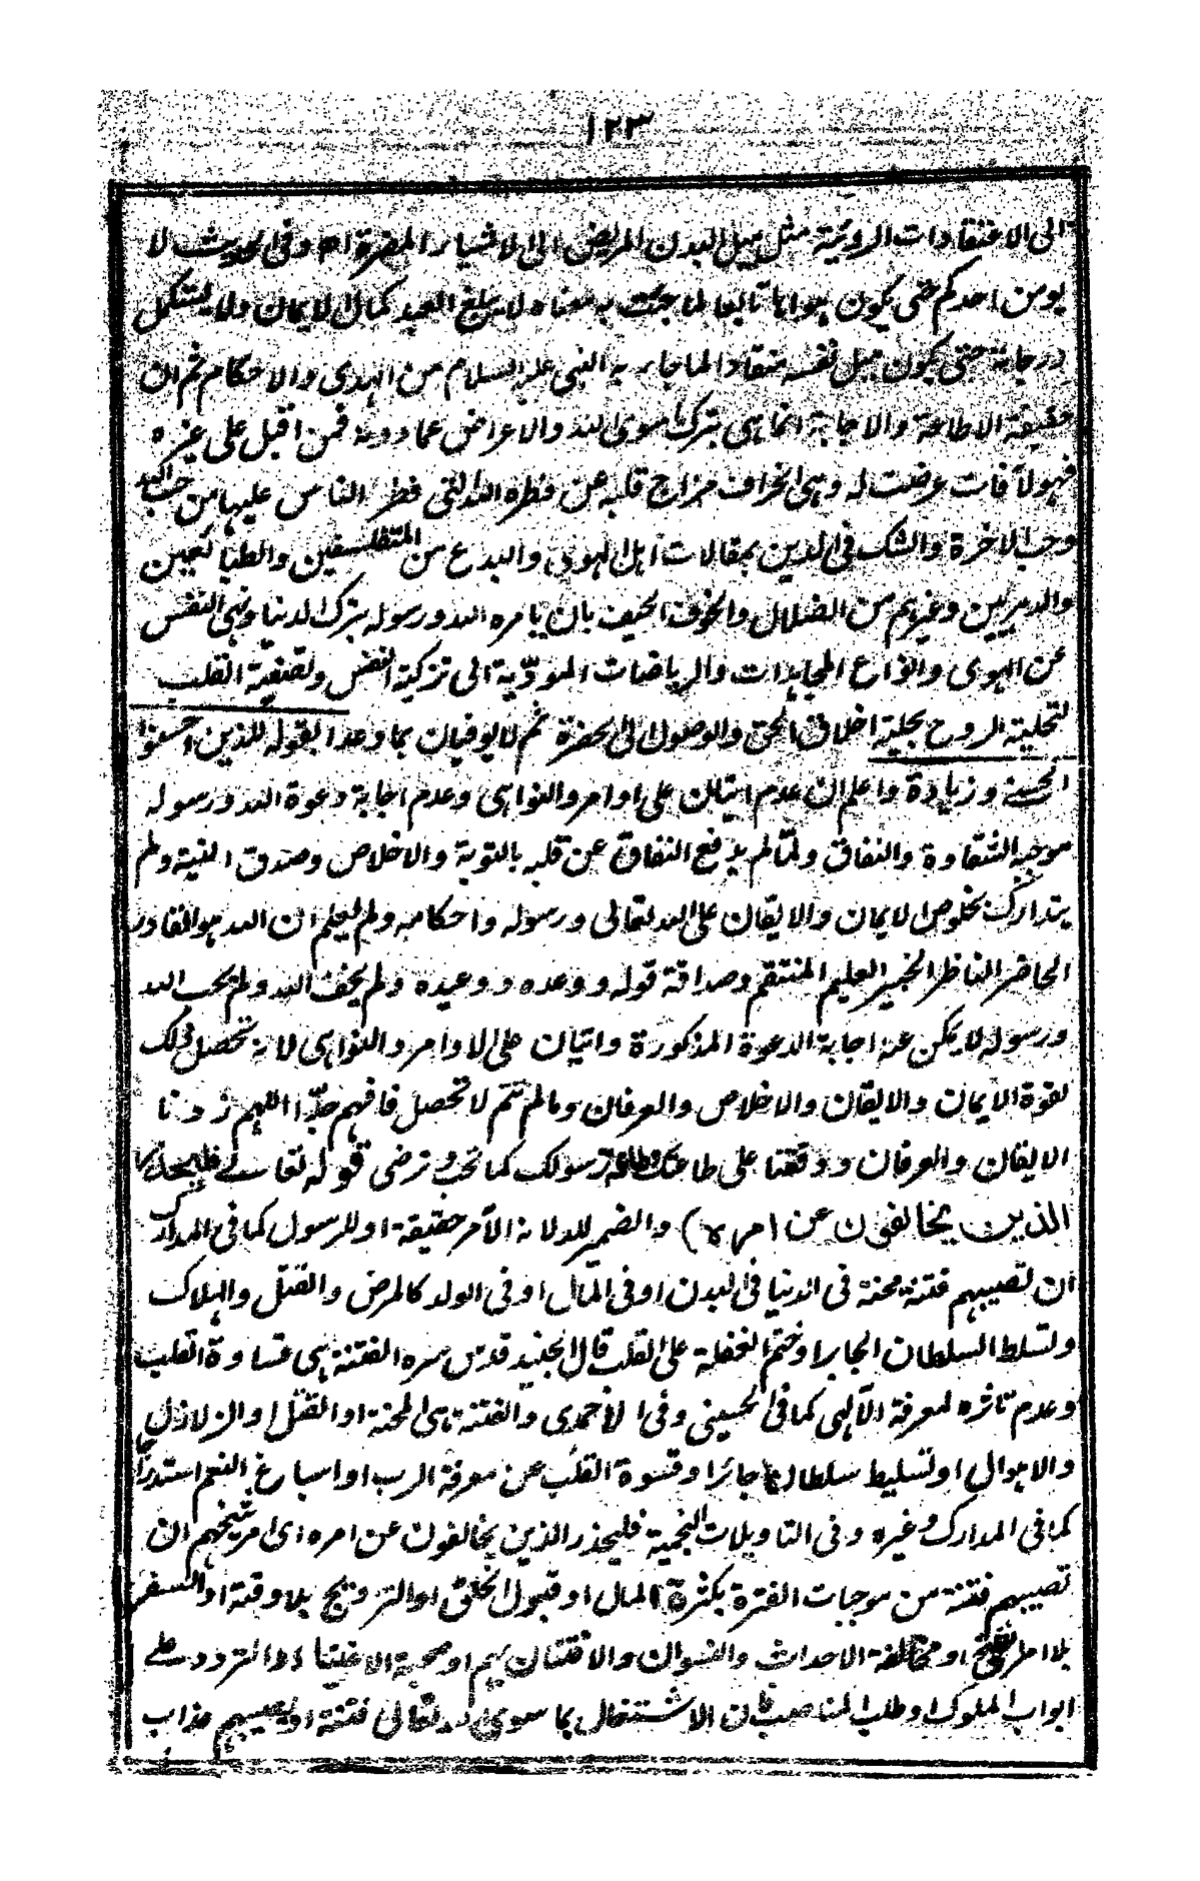 ١٢٣
الى الاعتقادات الرديّة مثل ميل البدن المريض الى الاشياء المضرة اه وفى الحديث لا
يومن احدكم حتى يكون هواه تابعا لما جئت به معناه لا يبلغ العبد كمال الايمان ولا يستكمل
درجاته حتى يكون ميل نفسه منقادا لما جاء به النبى عليه السلام من الهدى والاحكام ثم ان
حقيقة الاطاعة والاجابة انما هى بترك ما سوى الله والاعراض عما دونه فمن اقبل على غيره
فهو لآفات عرضت له وهى انحراف مزاج قلبه عن فطرة الله التى فطر الناس عليها من حب الله
وحب الاخرة والشك فى الدين بمقالات اهل الهوى والبدع من المتفلسفين والطبائعيين
والدهريين وغيرهم من الضلال والخوف الحيف بان يامره الله ورسوله بترك الدنيا ونهى النفس
عن الهوى وانواع المجاهدات والرياضات المودّية الى تزكية النفس وتصفية القلب
لتحلية الروح بحلية اخلاق الحق والوصول الى الحضرة ثم لا يوفيان بما وعدا بقوله للذين احسنوا
الحسنى وزيادة واعلم ان عدم ايتان على اوامر والنواهى وعدم اجابة دعوة الله ورسوله
موجبه الشقاوة والنفاق ولمّا لم يدفع النفاق عن قلبه بالتوبة والاخلاص وصدق النية ولم
يتدارك بخلوص الايمان والايقان على الله تعالى ورسوله واحكامه ولم يعلم ان الله هو القادر
الحاضر الناظر الخبير العليم المنتقم وصداقة قوله ووعده ووعيده ولم يخف الله ولم يحب الله
ورسوله لا يمكن عنه اجابة الدعوة المذكورة واتيان على الاوامر والنواهى لانه تحصل ذلك
لقوة الايمان والايقان والاخلاص والعرفان ومالم تتم لا تحصل فافهم جدّا اللهم زدنا
الايقان والعرفان ووفقنا على طاعتك وطاعة رسولك كما تحب وترضى قوله تعالى فليحذر
الذين يخالفون عن امره) والضمير لله لانه الآمر حقيقة او للرسول كما فى المدارك
ان تصيبهم فتنة محنة فى الدنيا فى البدن او فى المال او فى الولد كالمرض والقتل والهلاك
وتسلط السلطان الجابر او ختم الغفلة على القلب قال الجنيد قدس سره الفتنة هى قساوة القلب
وعدم تاثره لمعرفة الآلهى كما فى الحسينى وفى الاحمدى والفتنة هى المحنة او القتل او الزلازل
والاهوال او تسليط سلطان جائرا وقسوة القلب عن معرفة الرب او اسباغ النعم استدراجا
كما فى المدارك وغيره وفى التاويلات النجمية فليحذر الذين يخالفون عن امره اى امر شيخهم ان
تصيبهم فتنة من موجبات الفترة بكثرة المال او قبول الخلق او التزويج بلا وقته او السفر
بلا امر الشيخ او مخالطة الاحداث والنسوان والافتتان بهم او صحبة الاغنياء او التردد على
ابواب الملوك او طلب المناصب فان الاشتغال بما سوى الله تعالى فتنة او يصيبهم عذاب